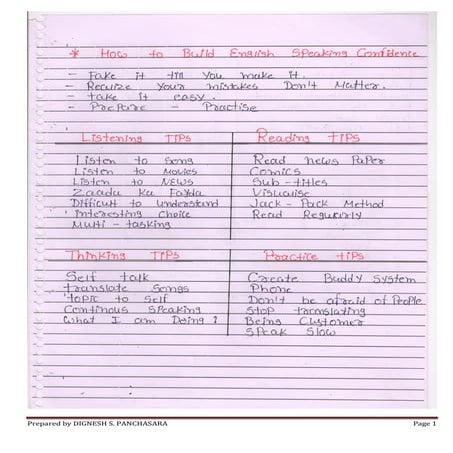 * How to Build English Speaking Confidence
- Fake it till you make it.
- Recurze Your mistakes Don't Matter.
- take it easy.
- Prepare - Practise
Listening TIPS
Listen to song
Listen to Movies
Listen to News
Zaada Ka Fayda
Difficult to understand
Interesting Choice
Multi - tasking
Reading TIPS
Read news Paper
Comics
Sub - titles
Visualise
Jack - Pack Method
Read Regurly
Thinking TIPS
Self talk
translate songs
'topic to self
Continous Speaking
What I am Doing ?
Practice tips
Create Buddy System
Phone
Don't be afraid of People
Stop translating
Being Customer
Speak Slow
Prepared by DIGNESH S. PANCHASARA Page 1